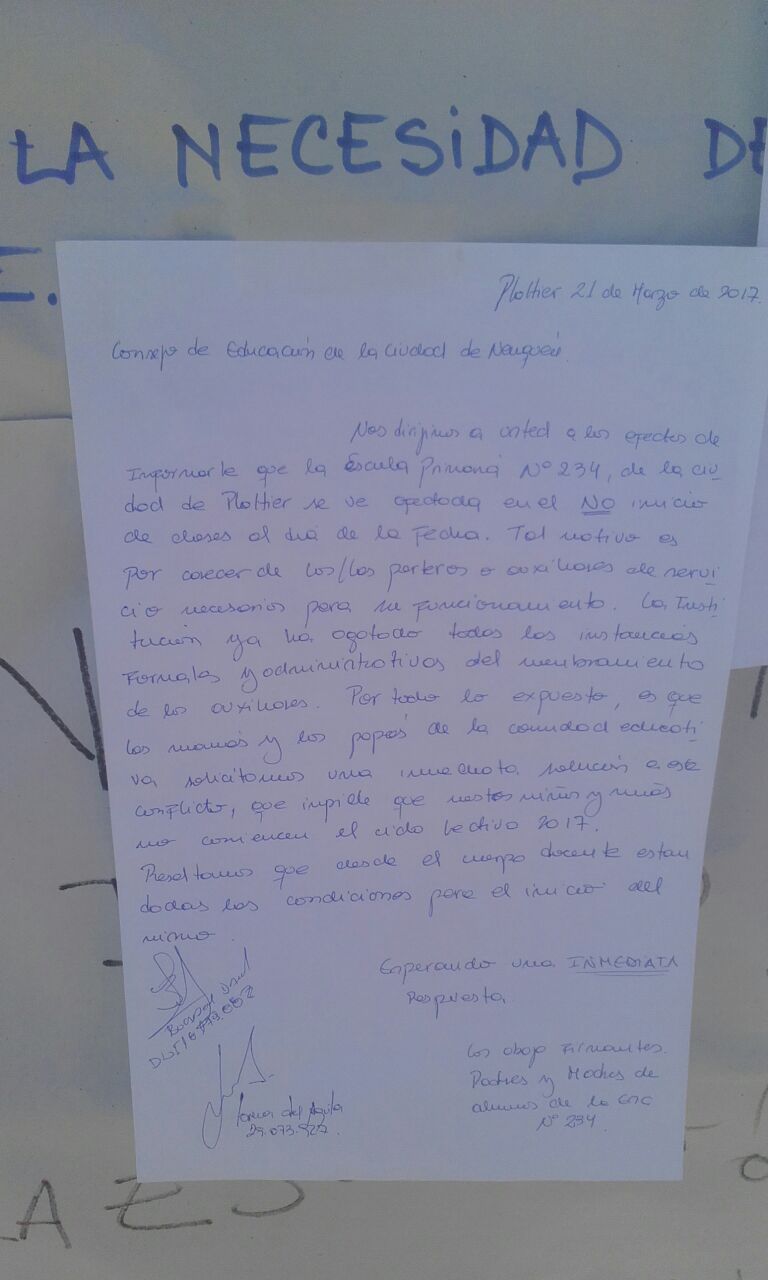 LA NECESIDAD DE
E.
Plottier 21 de Marzo de 2017.
Consejo de Educación de la Ciudad de Neuquén.
Nos dirigimos a usted a los efectos de
Informarle que la Escuela Primaria N° 234, de la ciu-
dad de Plottier se ve afectada en el NO inicio
de clases al día de la Fecha. Tal motivo es
por carecer de los/las porteros o auxiliares de servi-
cio necesarios para su Funcionamiento. La Insti-
tución ya ha agotado todas las instancias
Formales y administrativas del nombramiento
de los auxiliares. Por todo lo expuesto, es que
las mamás y los papás de la comunidad educati-
va solicitamos una inmediata solución a este
conflicto, que impide que nuestros niños y niñas
no comiencen el ciclo lectivo 2017.
Resaltamos que desde el cuerpo docente estan
dadas las condiciones para el inicio del
mismo.
Esperando una INMEDIATA
Respuesta.
Los abajo Firmantes.
Padres y Madres de
alumnos de la Esc
N° 234.
DNI
del Aguila
29.073.522
LA ES